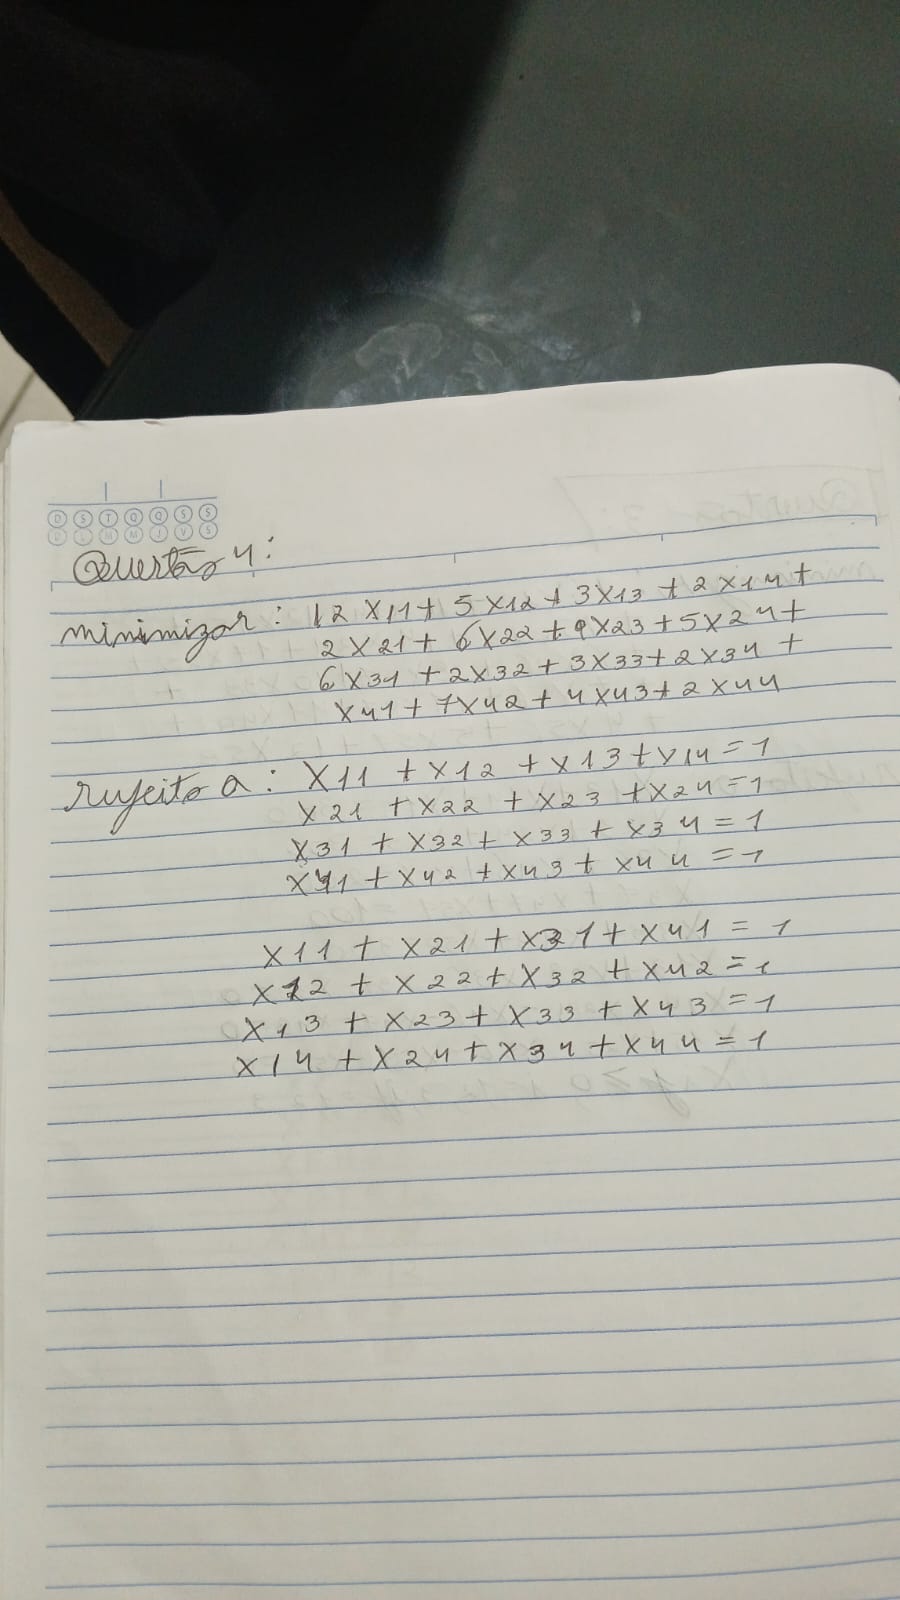 D S T Q Q S S
D L M M J V S
Questão 4:
minimizar: 12 X11 + 5 X12 + 3X13 + 2 X14 +
2X21 + 6X22 + 9X23 + 5X24 +
6X31 + 2X32 + 3X33 + 2X34 +
X41 + 7X42 + 4X43 + 2X44
sujeito a: X11 + X12 + X13 + X14 = 1
X21 + X22 + X23 + X24 = 1
X31 + X32 + X33 + X34 = 1
X41 + X42 + X43 + X44 = 1
X11 + X21 + X31 + X41 = 1
X12 + X22 + X32 + X42 = 1
X13 + X23 + X33 + X43 = 1
X14 + X24 + X34 + X44 = 1